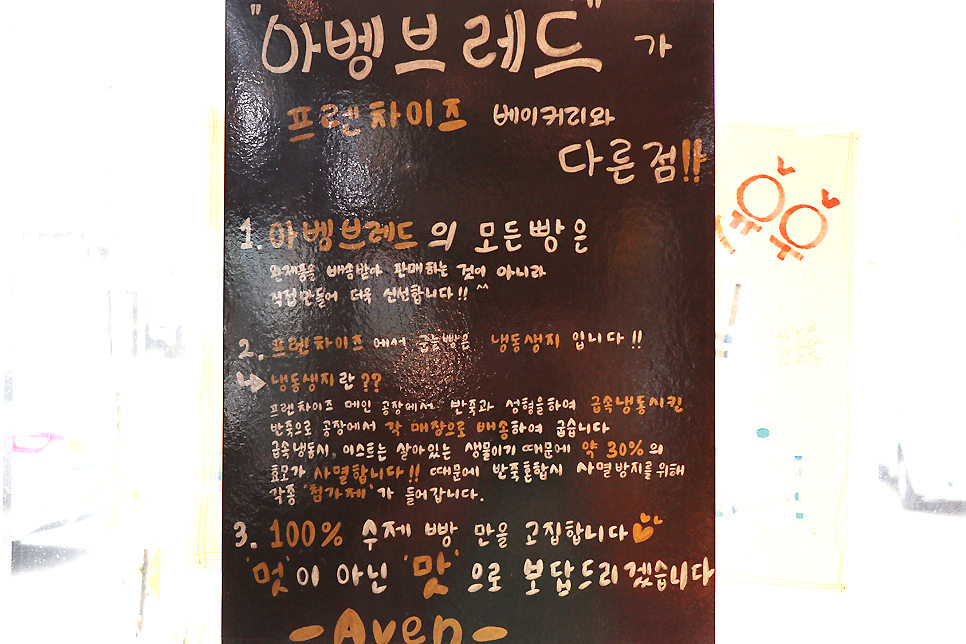 "아벵브레드"가
프렌차이즈 베이커리와
다른점!!
1. 아벵브레드의 모든빵은
완제품을 배송받아 판매하는 것이 아니라
직접만들어 더욱 신선합니다!! ^^
2. 프렌차이즈에서 굽는빵은 냉동생지 입니다!!
↳ 냉동생지란??
프렌차이즈 메인 공장에서 반죽과 성형을하여 급속냉동시킨
반죽으로 공장에서 각 매장으로 배송하여 굽습니다
급속냉동시, 이스트는 살아있는 생물이기 때문에 약 30%의
효모가 사멸합니다!! 때문에 반죽혼합시 사멸방지를위해
각종 '첨가제'가 들어갑니다.
3. 100% 수제 빵 만을 고집합니다
'멋'이 아닌 '맛'으로 보답드리겠습니다
-Aven-